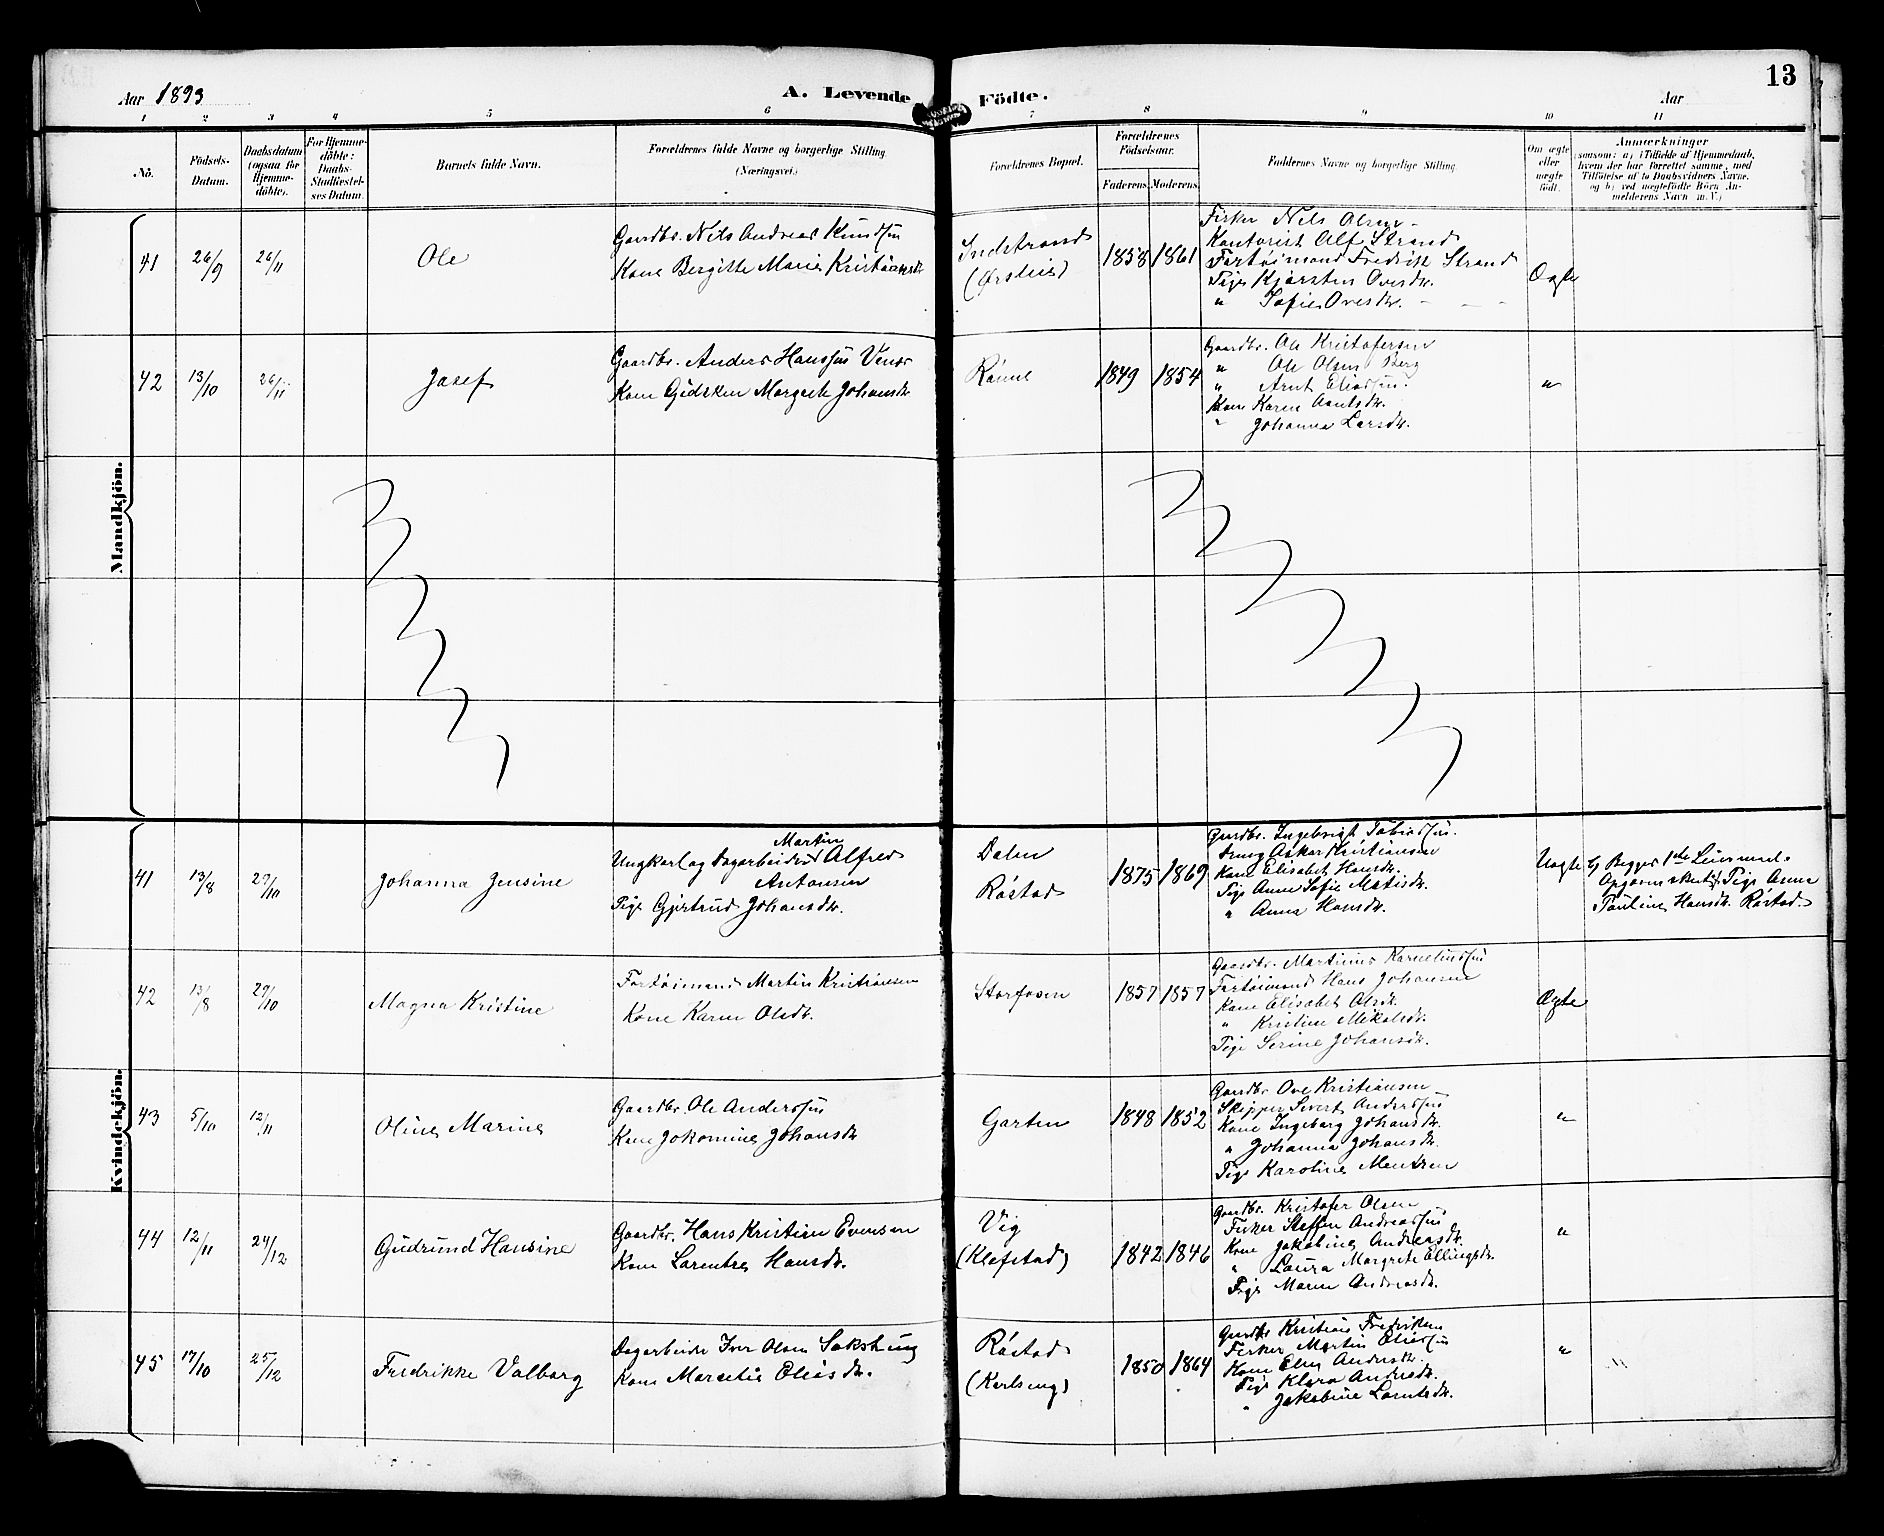 13
Aar 1893
A. Levende Födte.
Aar
1 2 3 4 5 6 7 8 9 10 11
No.
Födsels-Datum.
Daabsdatum (ogsaa for Hjemme-döbte).
For Hjemme-döbte: Daabs-Stadfæstel-ses Datum.
Barnets fulde Navn.
Forældrenes fulde Navne og borgerlige Stilling.
(Næringsvei.)
Forældrenes Bopæl.
Forældrenes Födselsaar.
Faderens. Moderens.
Faddernes Navne og borgerlige Stilling.
Om ægte eller uægte født.
Anmærkninger
(saasom: a) i Tilfælde af Hjemmedaab,
hvem der har forrettet samme, med
Tilföielse af to Daabsvidners Navne.
og b) ved uægtefödte Börn An-
melderens Navn m. V.)
Mandkjön.
41 26/9 26/11 Ole
Gaardbr. Nils Andreas Knudsen
Kone Bergitte Marie Kristiansdr.
Indstrand
1858 1861
Fisker Nils Olsen
Kontorist Alf Strand
Fartøimand Fredrik Strand
Pige Kjersten Ovesdr.
" Sofie Ovesdr.
Ægte
42 13/10 26/11 Josef
Gaardbr. Anders Hanssen
Kone Gidsken Margrete Johansdr.
Rønne
1849 1854
Gaardbr. Ole Kristofersen
" Ole Olsen Berg
" Arnt Eliassen.
Kone Karen Arntsdr.
" Johanna Larsdr.
"
Kvindekjön.
41 13/8 29/10 Johanna Jensine
Martin
Ungkarl og Dagarbeider Alfred
Antonsen
Pige Gjertrud Johansdr.
Dalen
Røstad
1875 1869
Gaardbr. Ingebrigt Tobiassen.
Dreng Oskar Kristiansen
Kone Elisabet Hansdr.
Pige Anne Sofie Matisdr.
" Anna Hansdr.
Uægte
b) Begges 1ste Leiermaal.
Opgaven Pige Anna
Pauline Hansdr. Røstad.
42 13/8 29/10 Magna Kristine
Fartøimand Martin Kristiansen
Kone Karen Olsdr.
Storfosen
1857 1857
Gaardbr. Martinus Korneliussen
Fartøimand Hans Johansen
Kone Elisabet Olsdr.
" Kristine Mikalsdr.
Pige Serine Johansdr.
Ægte
43 5/10 12/11 Oline Marine
Gaardbr. Ole Anderssen
Kone Jokomine Johansdr.
Garten
1848 1852
Gaardbr. Ove Kristiansen
Skipper Sivert Anderssen
Kone Ingeborg Johansdr.
" Johanna Johansdr.
Pige Karoline Mentzen
"
44 12/11 24/12 Gudrund Hansine
Gaardbr. Hans Kristian Evensen
Kone Larentze Hansdr.
Vig
(Klefstad)
1842 1846
Gaardbr. Kristofer Olsen
Fisker Steffen Andreassen
Kone Jakobine Andreasdr.
" Laura Margrete Ellingsdr.
Pige Maren Andreasdr.
"
45 17/10 25/12 Fredrikke Valborg
Dagarbeider Iver Olsen Sakshaug
Kone Maretie Eliasdr.
Røstad
(Karlseng)
1850 1864
Gaardbr. Kristian Fredriksen
Fisker Martin Eliassen
Kone Elen Andersdr.
Pige Klara Andersdr.
" Jakobine Larntsdr.
"